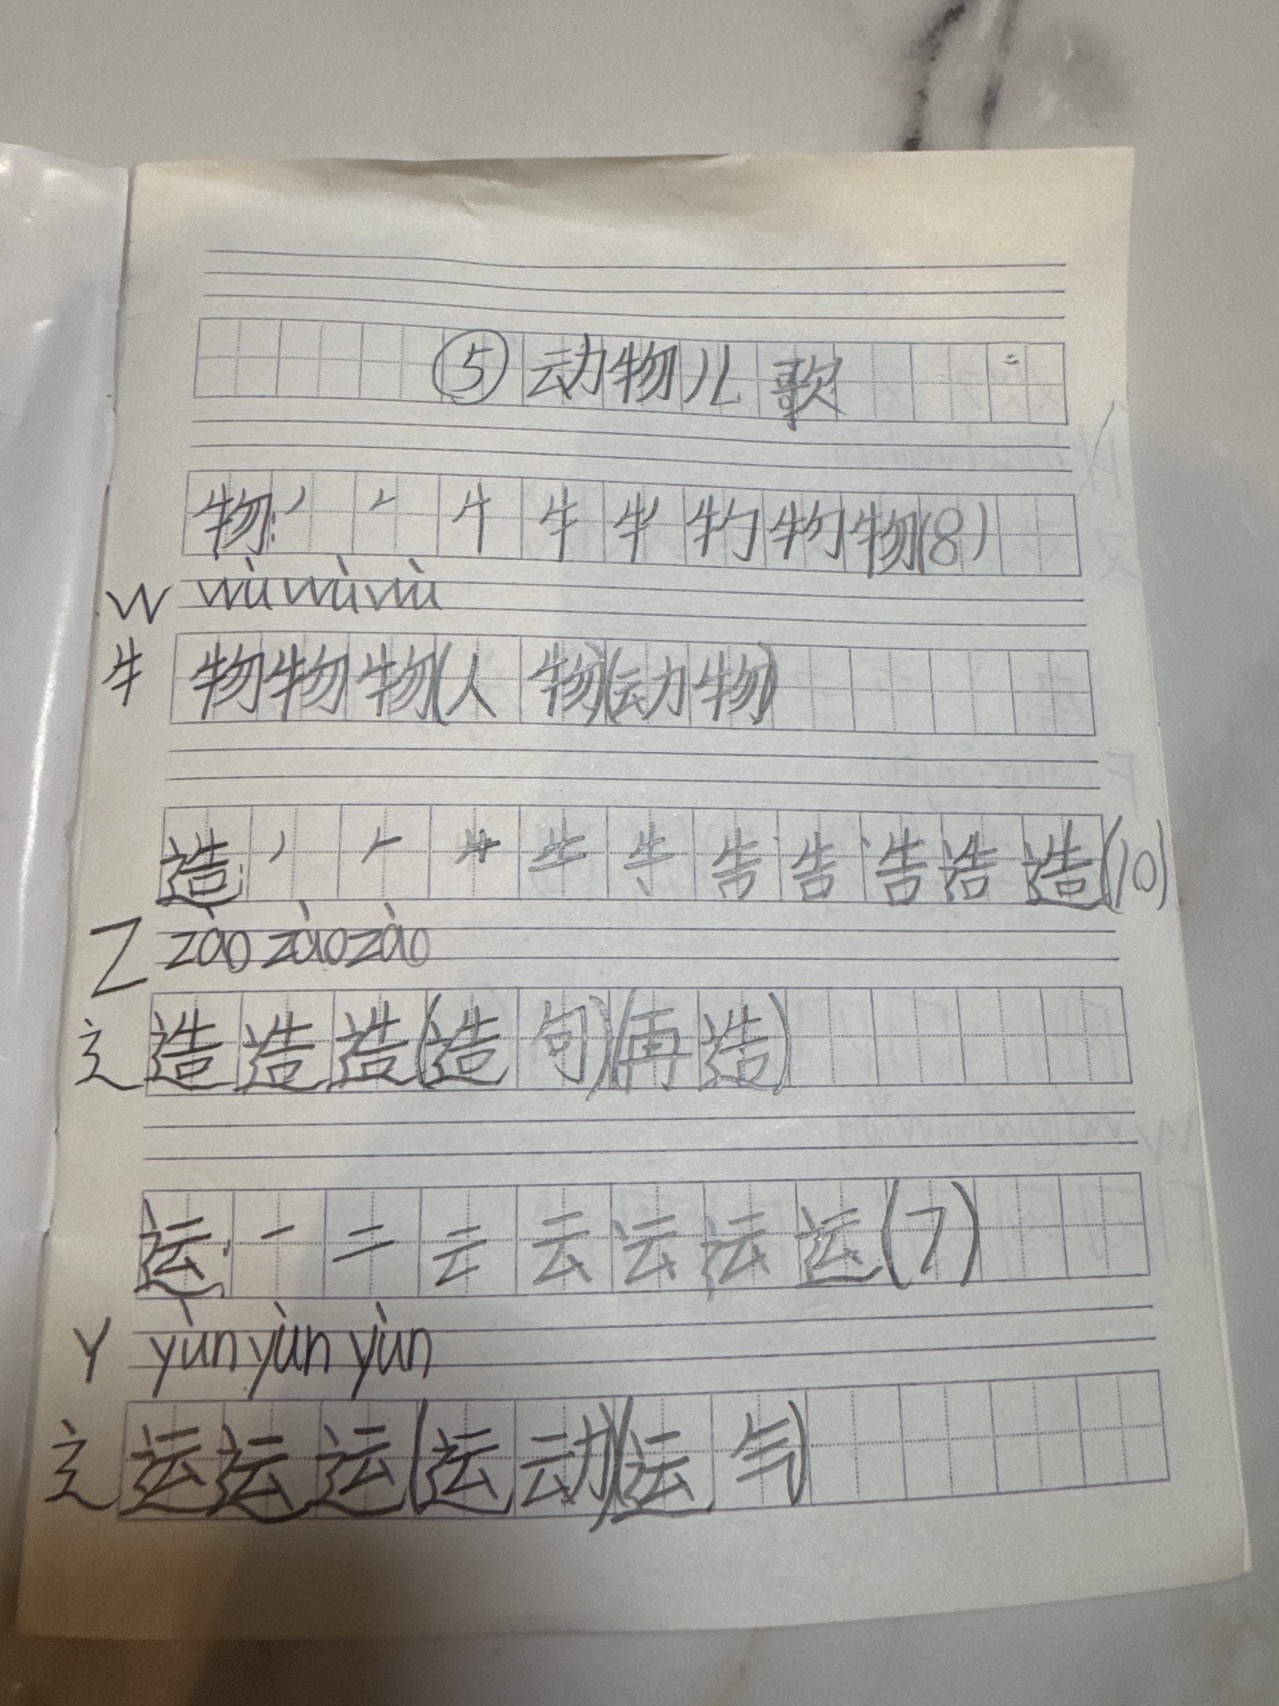 ⑤动物儿歌
物:丿 𠂉 牛 物 物(8)
W wù wù wù
牜 物物物(人物)(动物)
造:丿 𠂉 告 告 造(10)
Z zào zào zào
辶 造造造(造句)(再造)
运:一 二 云 运(7)
Y yùn yùn yùn
辶 运运运(运动)(运气)